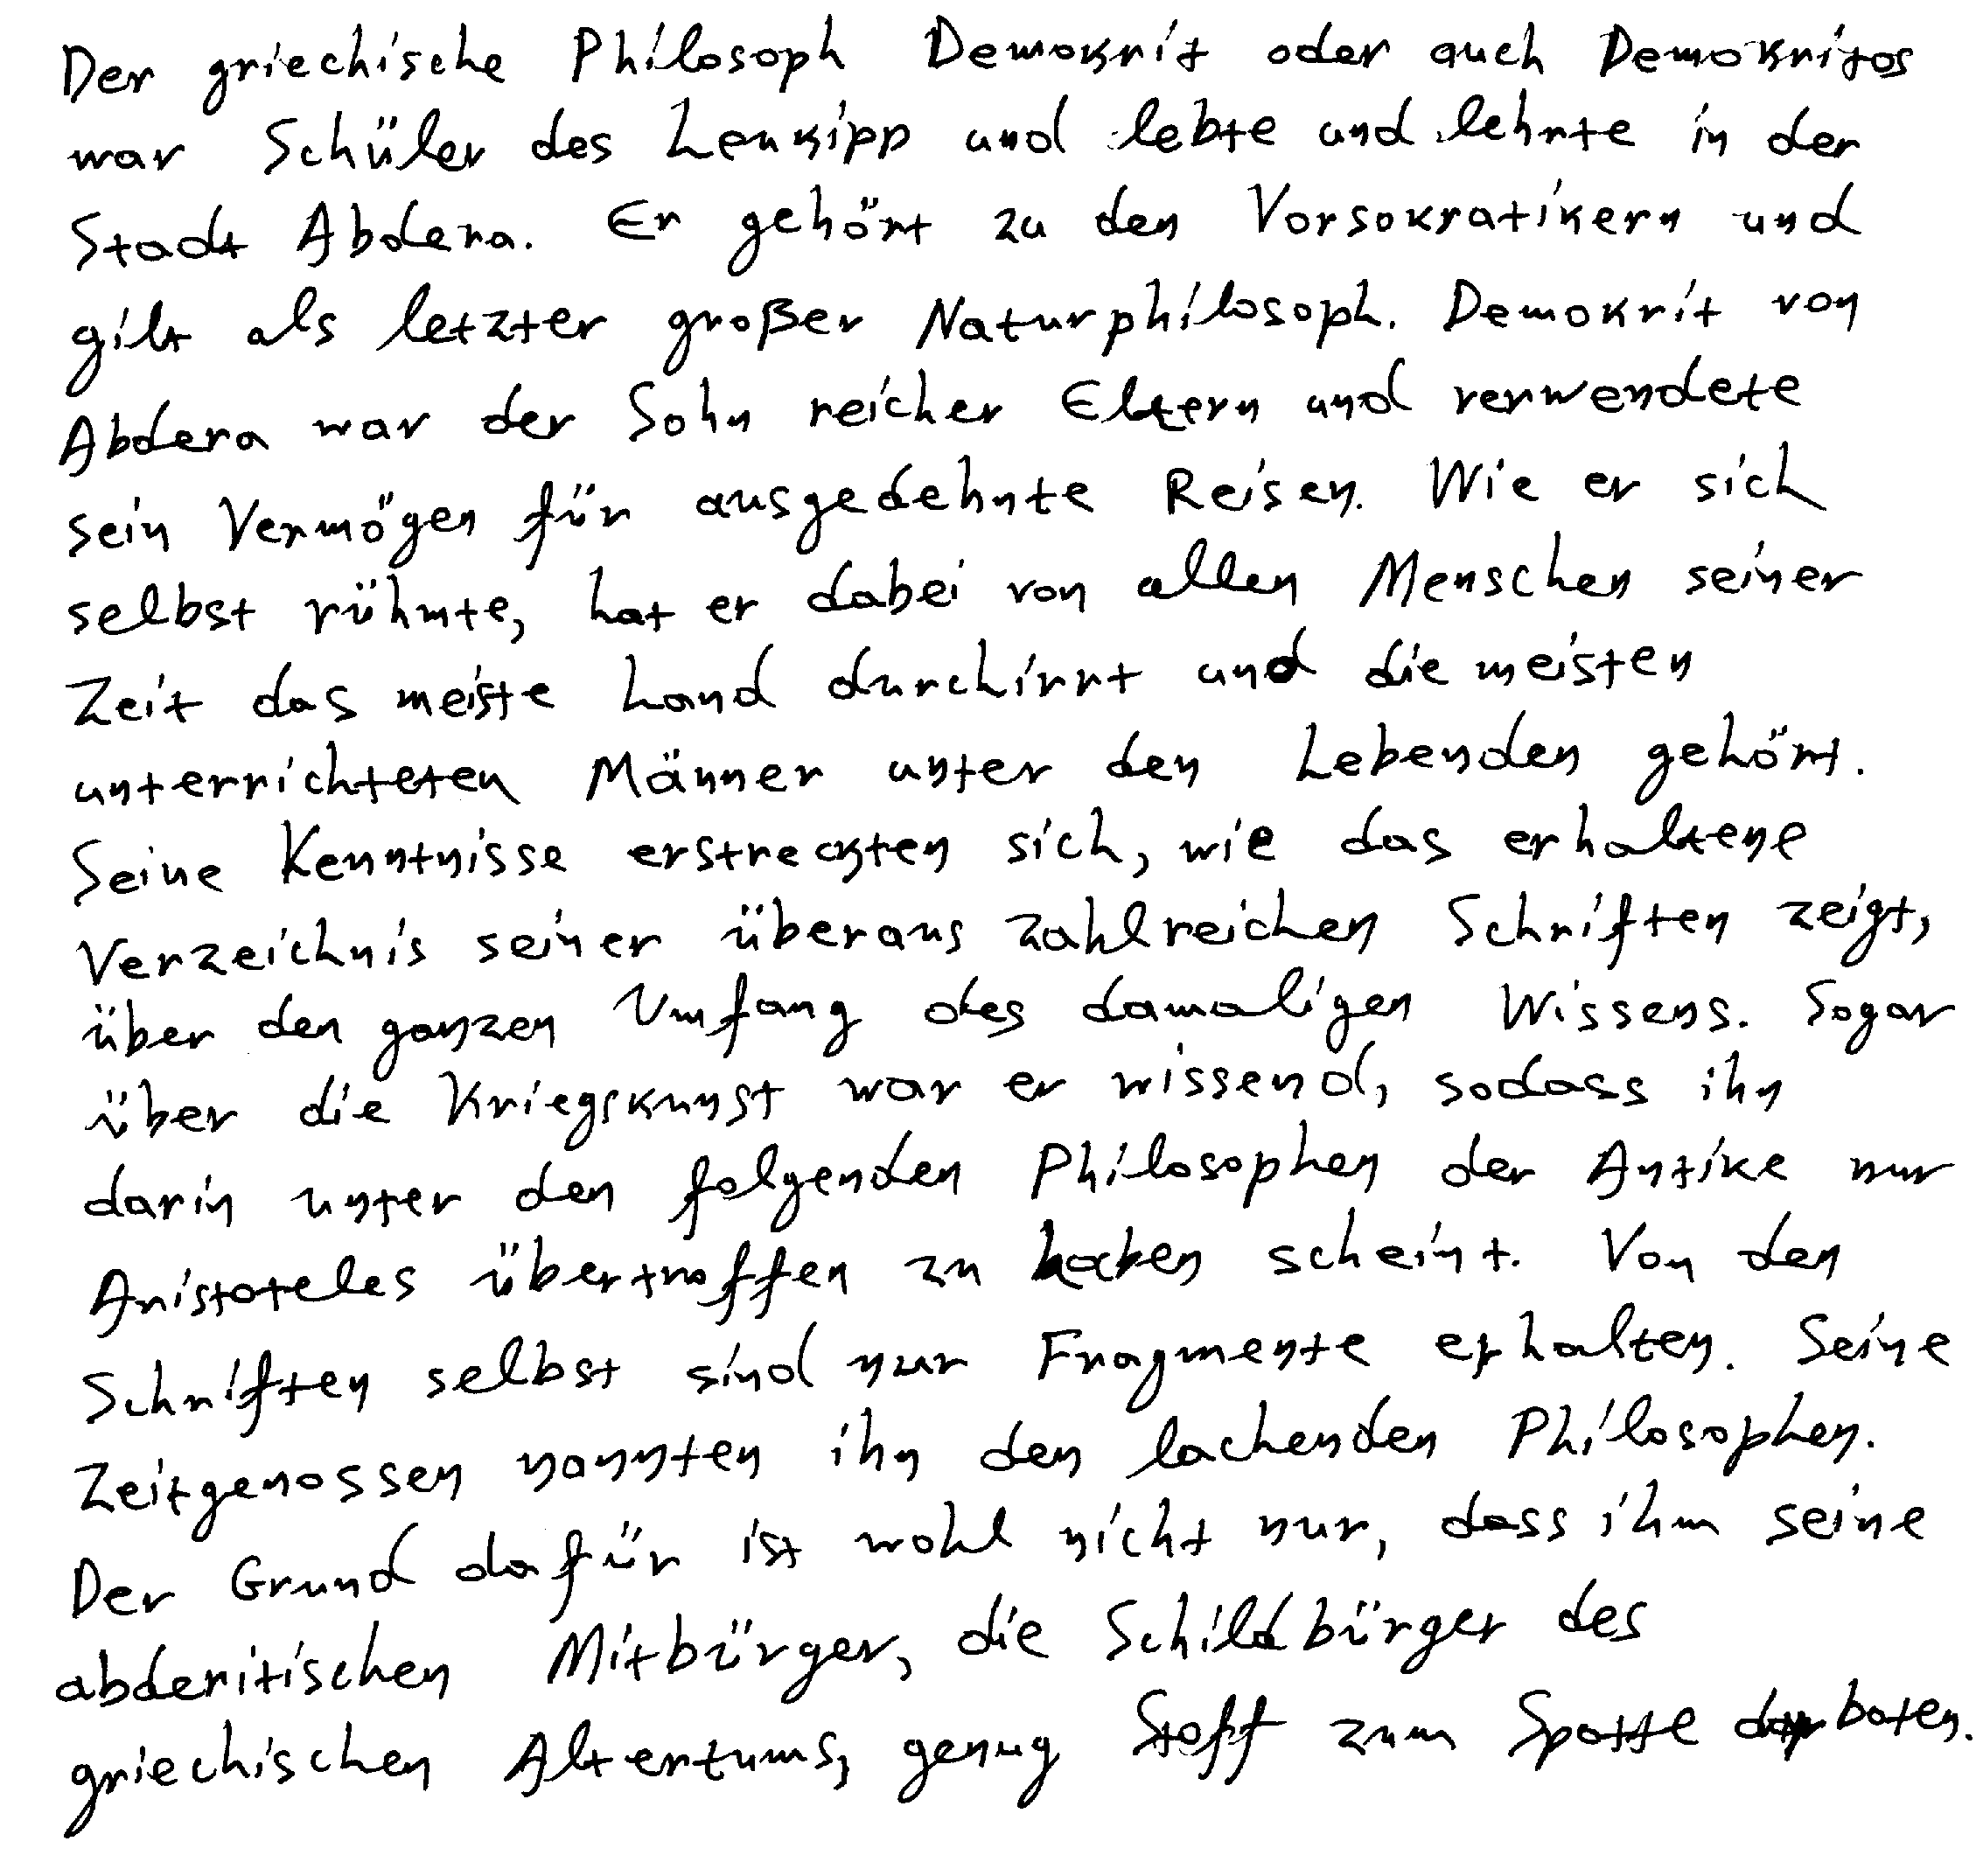 Der griechische Philosoph Demokrit oder auch Demokritos
war Schüler des Leukipp und lebte und lehrte in der
Stadt Abdera. Er gehört zu den Vorsokratikern und
gilt als letzter großer Naturphilosoph. Demokrit von
Abdera war der Sohn reicher Eltern und verwendete
sein Vermögen für ausgedehnte Reisen. Wie er sich
selbst rühmte, hat er dabei von allen Menschen seiner
Zeit das meiste Land durchirrt und die meisten
unterrichteten Männer unter den Lebenden gehört.
Seine Kenntnisse erstreckten sich, wie das erhaltene
Verzeichnis seiner überaus zahlreichen Schriften zeigt,
über den ganzen Umfang des damaligen Wissens. Sogar
über die Kriegskunst war er wissend, sodass ihn
darin unter den folgenden Philosophen der Antike nur
Aristoteles übertroffen zu haben scheint. Von den
Schriften selbst sind nur Fragmente erhalten. Seine
Zeitgenossen nannten ihn den lachenden Philosophen.
Der Grund dafür ist wohl nicht nur, dass ihm seine
abderitischen Mitbürger, die Schildbürger des
griechischen Altertums, genug Stoff zum Spotte darboten.